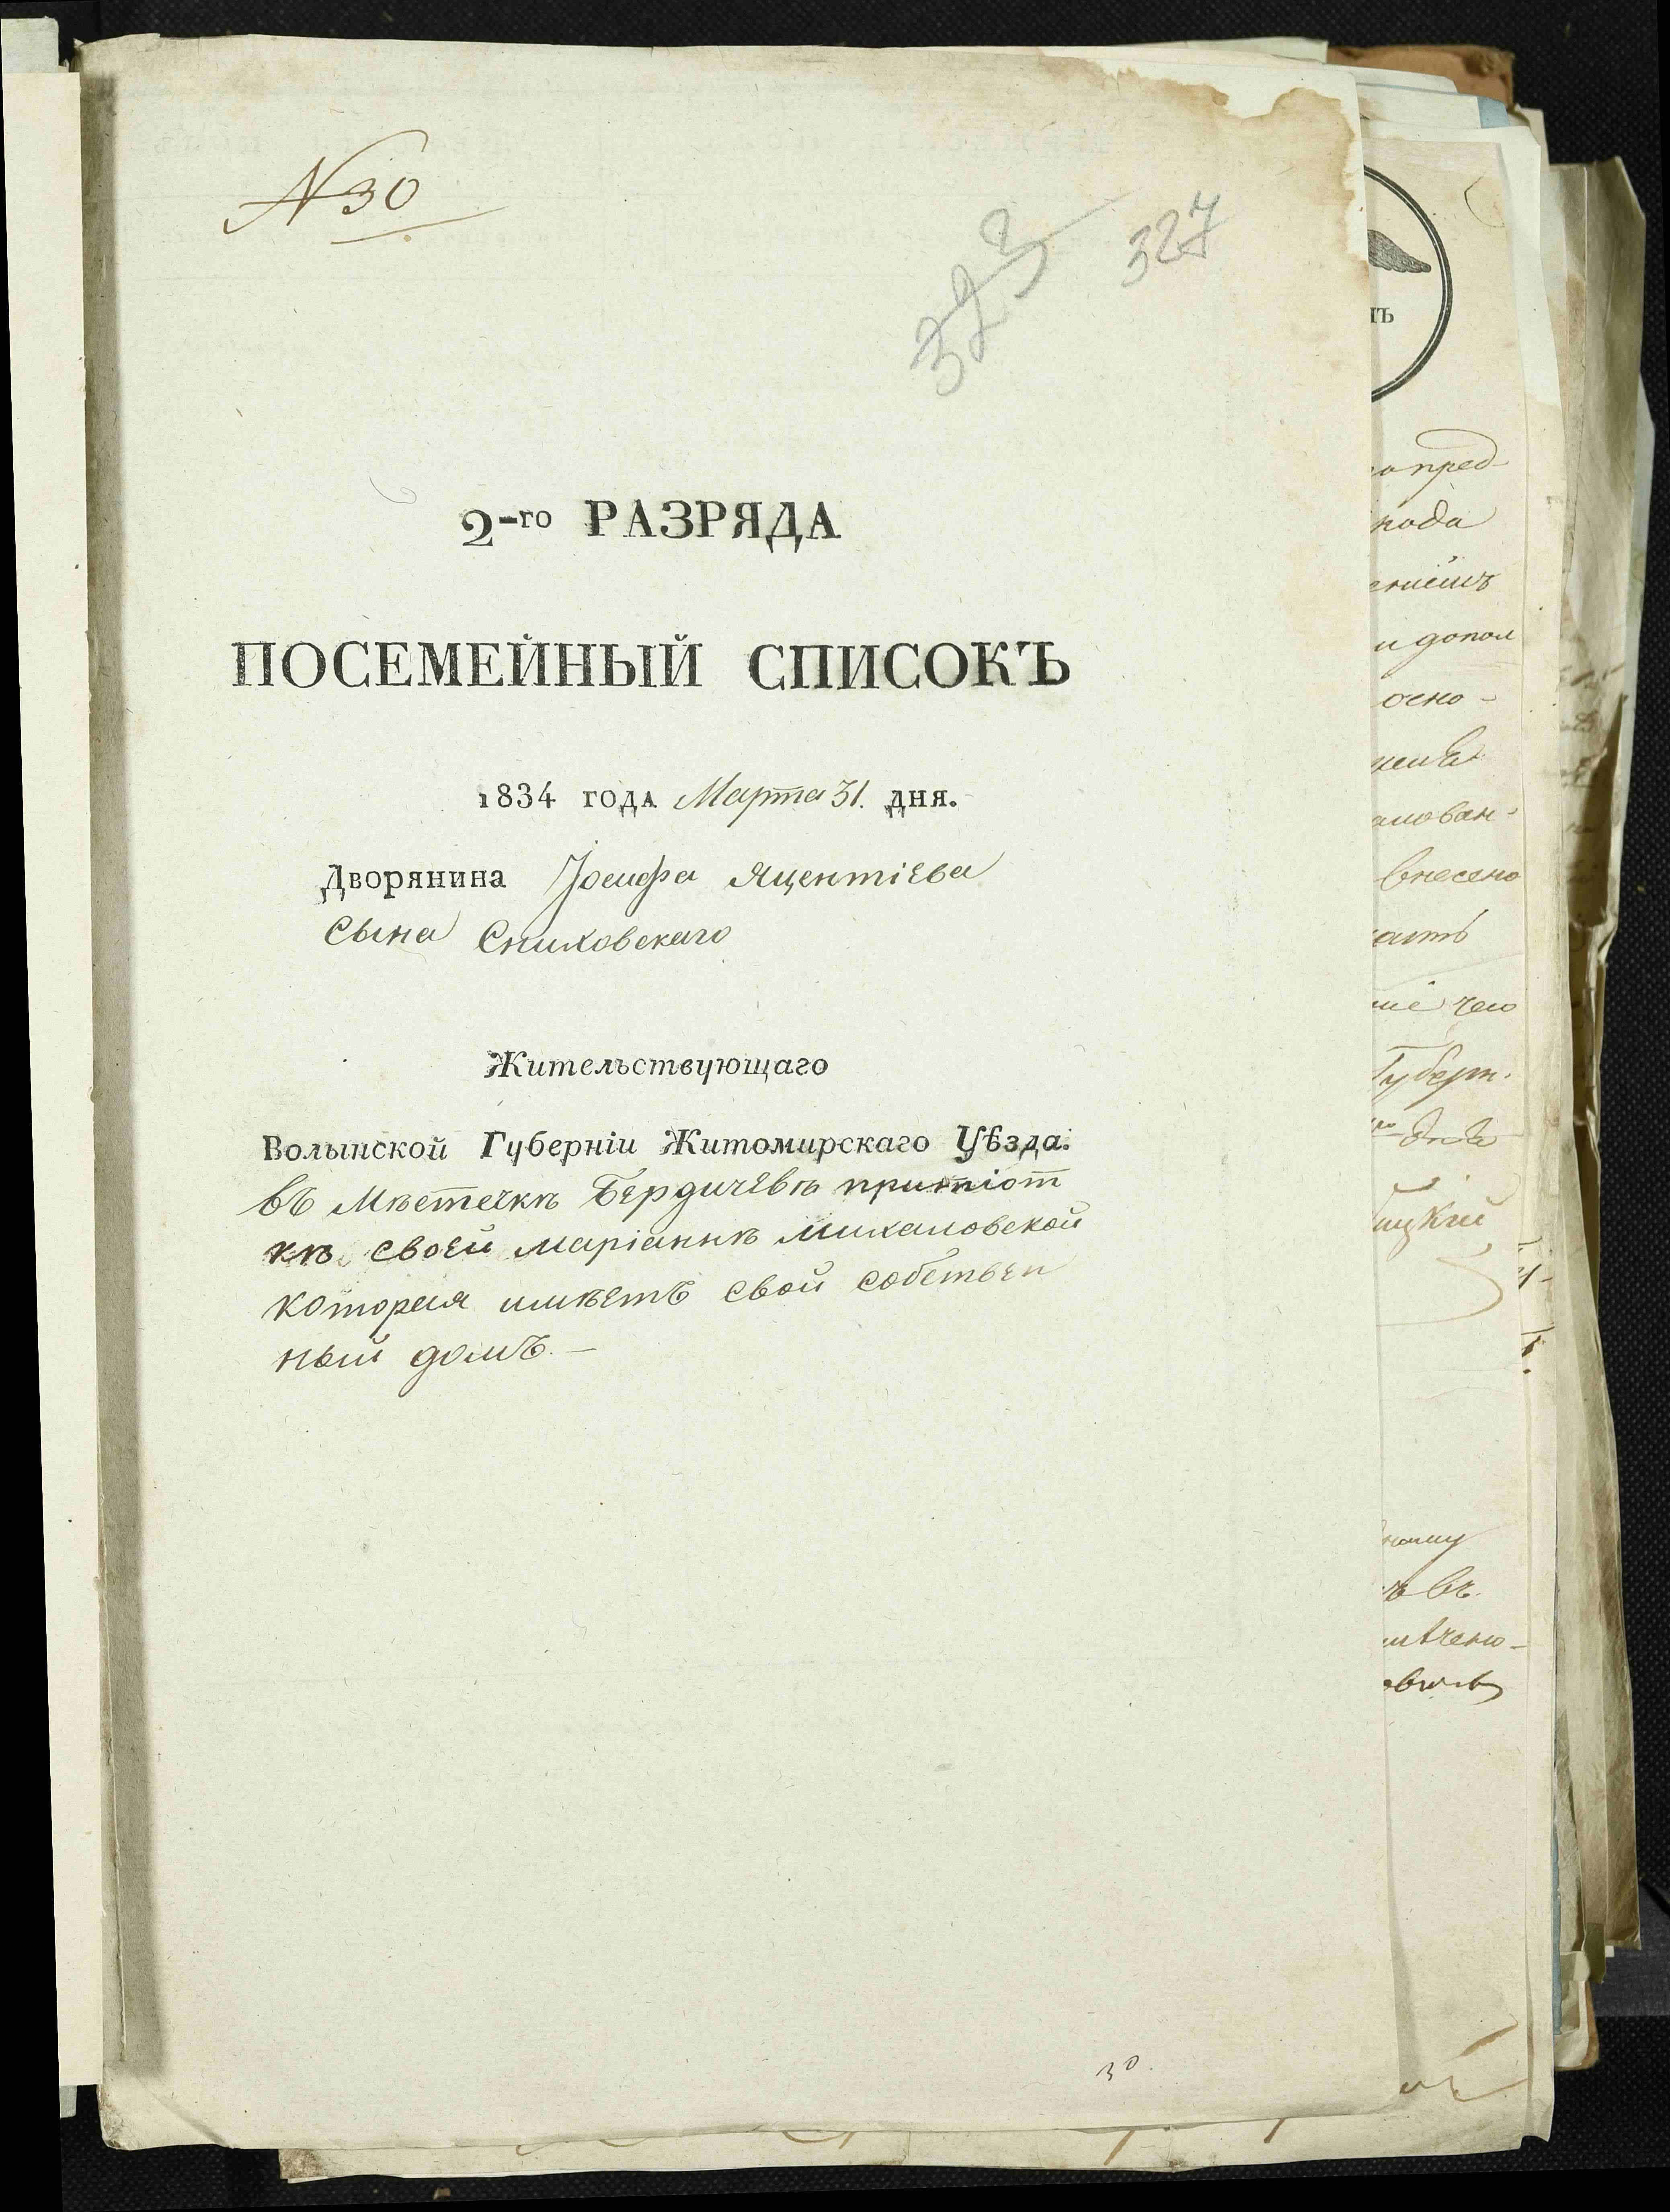 N 30
323
327
2-го РАЗРЯДА
ПОСЕМЕЙНЫЙ СПИСОКЪ
1834 года Марта 31. дня.
Дворянина Іосифа Яцентіева
сына Сниховскаго
Жительствующаго
Волынской Губерніи Житомирскаго Уѣзда.
въ Мѣстечкѣ Бердичевѣ при тіот
кѣ своей Маріаннѣ Михаловской
которая имѣетъ свой собствен
ный домъ. —
30.
пред
и допол
осно-
внесено
чего
Губерн.